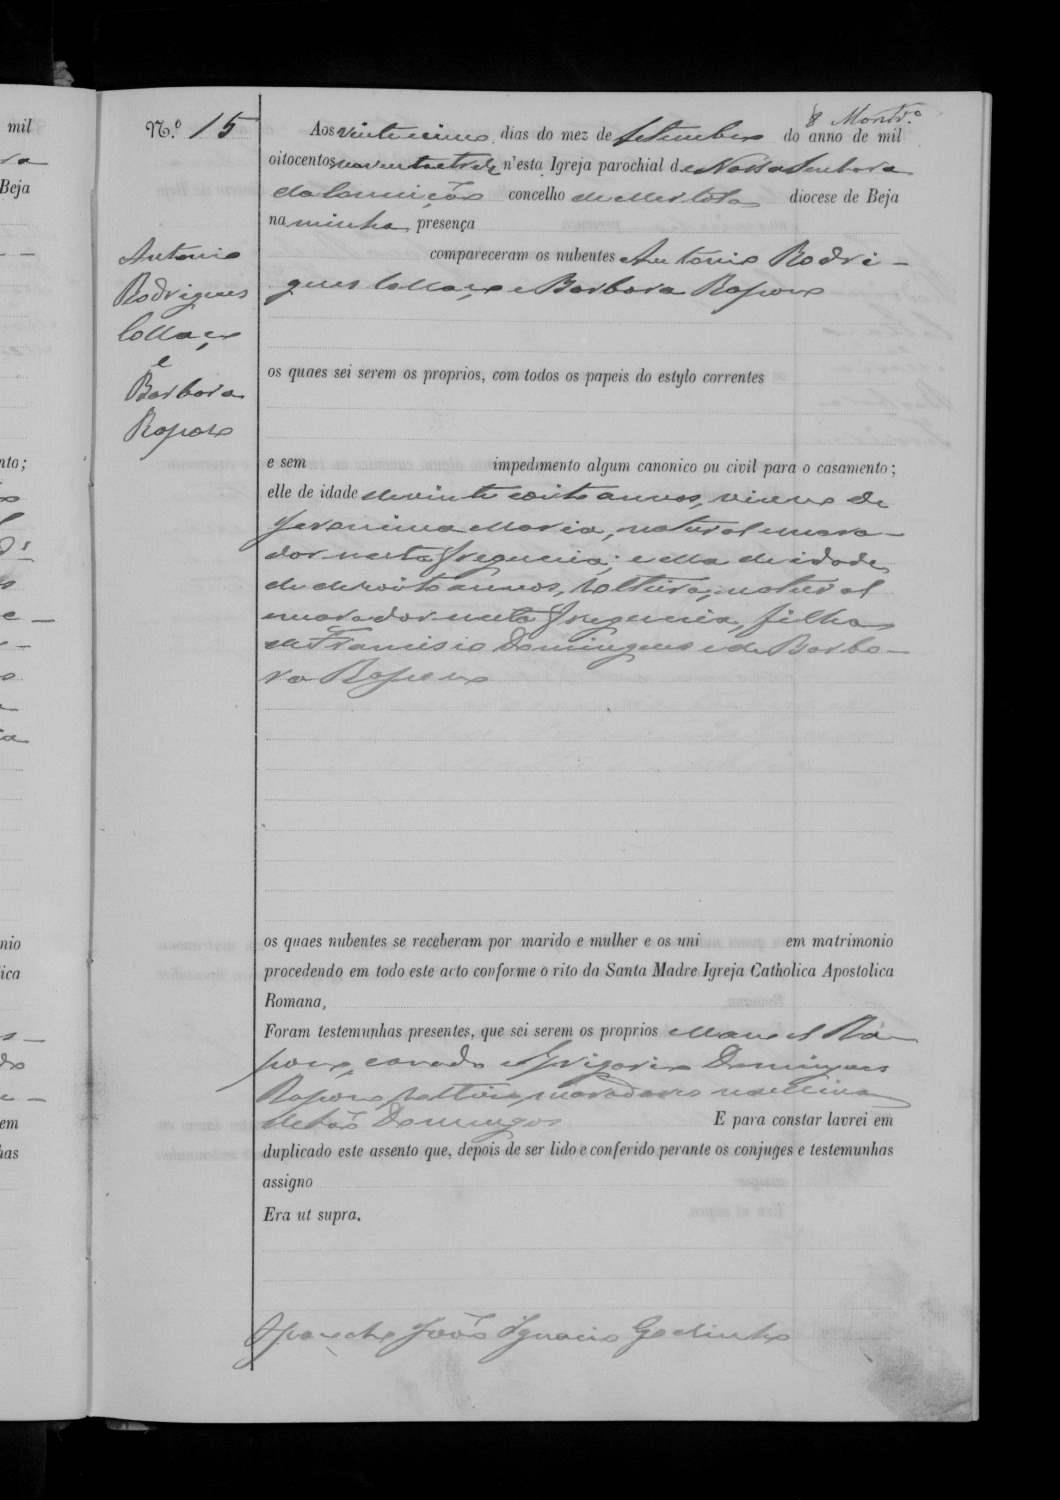 8 Montr.º
N.º 15
Aos vinte e cinco dias do mez de Setembro do anno de mil
oitocentos noventa e tres n'esta Igreja parochial de Nossa Senhora
da Conceição concelho de Mertola diocese de Beja
na minha presença
compareceram os nubentes Antonio Rodri-
gues Collaço e Barbara Raposo
Antonio
Rodrigues
Collaço
e
Barbara
Raposo
os quaes sei serem os proprios, com todos os papeis do estylo correntes
e sem impedimento algum canonico ou civil para o casamento;
elle de idade de vinte e oito annos, viuvo de
Jeronima Maria, natural e mora-
dor nesta freguezia; e ella de idade
de dezoito annos, solteira, natural
e morador nesta freguezia, filha
de Francisco Domingues e de Barba-
ra Raposo
os quaes nubentes se receberam por marido e mulher e os uni em matrimonio
procedendo em todo este acto conforme o rito da Santa Madre Igreja Catholica Apostolica
Romana.
Foram testemunhas presentes, que sei serem os proprios Manoel Ra-
poso, casado e Grigorio Domingues
Raposo, solteiro, moradores na Mina
de São Domingos E para constar lavrei em
duplicado este assento que, depois de ser lido e conferido perante os conjuges e testemunhas
assigno
Era ut supra.
O parocho João Ignacio Godinho
mil
Beja
nto;
nio
ica
em
has